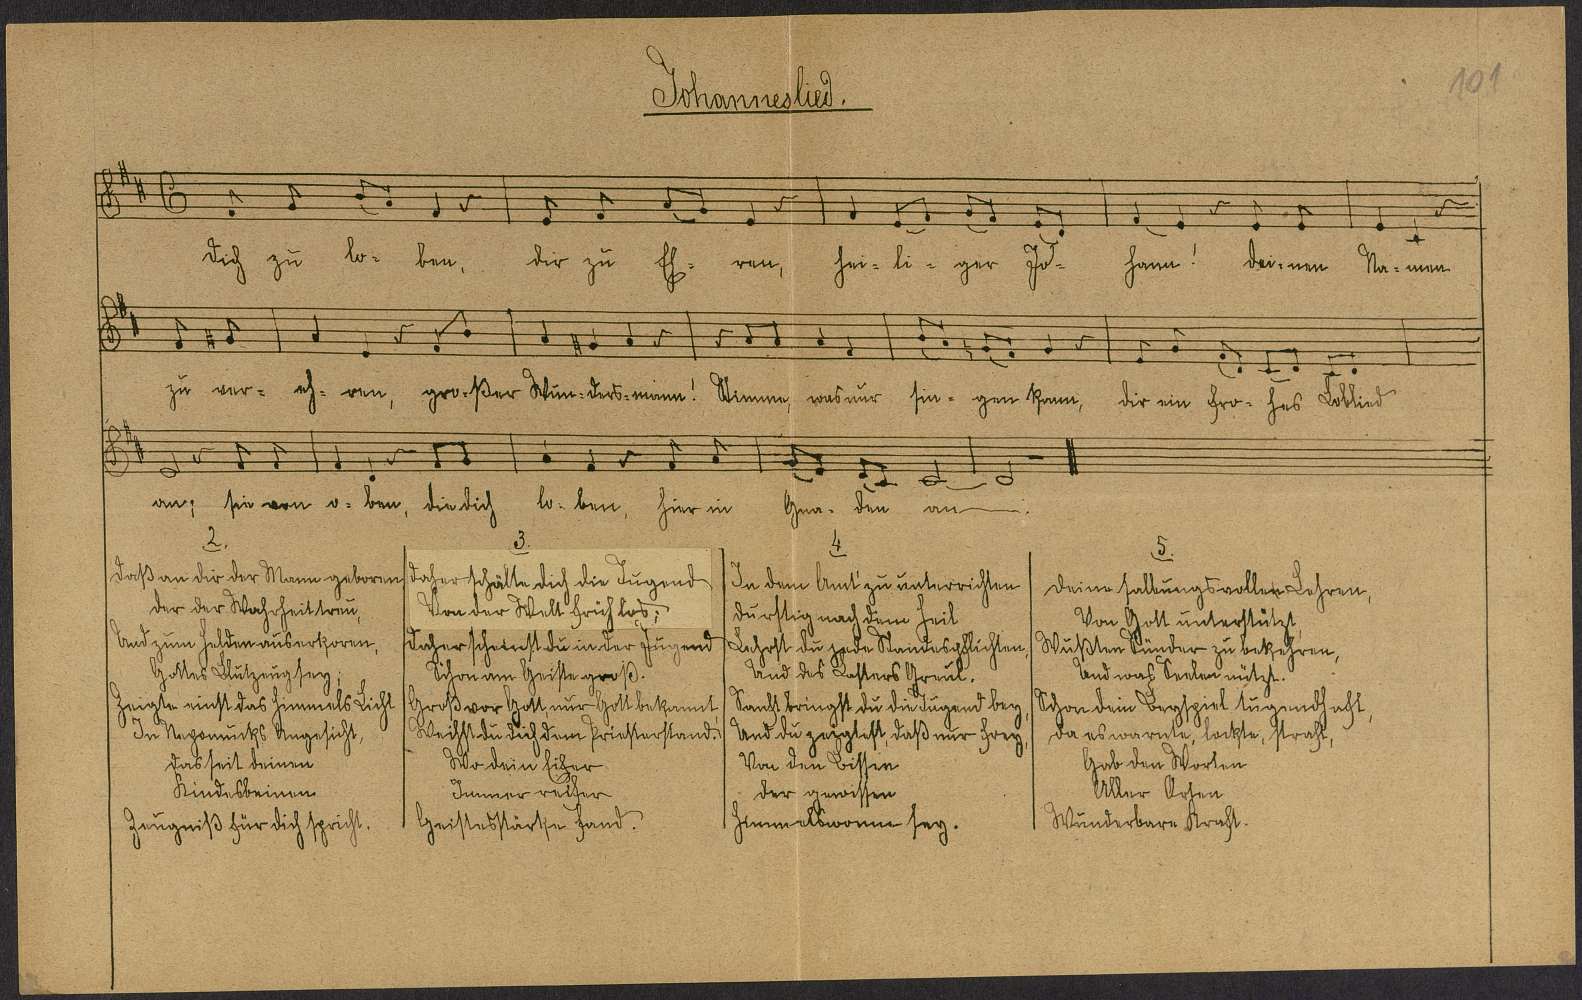 Johanneslied.
101
Dich zu lo- ben, dir zu Eh- ren, hei- li- ger Jo- hann! dei- nen Na- men
zu ver- eh- ren, gro- ßer Wun- ders- mann! Stimme, was nur sin- gen kann, dir ein fro- hes Loblied
an; sie von o- ben, die dich lo- ben, hier in Gna- den an.
2.
Daß an dir der Mann geboren
Der der Wahrheit treu,
Und zum Helden auserkoren,
Gottes Blutzeug sey;
Zeigte einst das Himmels Licht
In Nepomucks Angesicht,
Das seit deinen
Kindesbeinen
Zeugniß für dich spricht.
3.
Daher schälte dich die Tugend
Von der Welt früh los;
Daher scheinest du in der Jugend
Schon am Geiste groß.
Groß vor Gott, nur Gott bekannt
Weihst du dich dem Priesterstand.
Wo dein Eifer
Immer reifer
Geistesstärke fand.
4
In dem Amt zu unterrichten
Durstig nach dem Heil
Lehrst du jede Standespflichten,
Und des Lasters Greul.
Sanft bringst du die Tugend bey,
Und du zeigtest, daß nur frey,
Von den Bissen
Der gewissen
Himmelswonne sey.
5.
Deine salbungsvollen Lehren,
Von Gott unterstützt,
Wußten Sünder zu bekehren,
Und was Seelen nützt.
Schon dein Beyspiel tugendhaft,
Da es warnte, lockte, straft,
Gab den Worten
Aller Orten
Wunderbare Kraft.